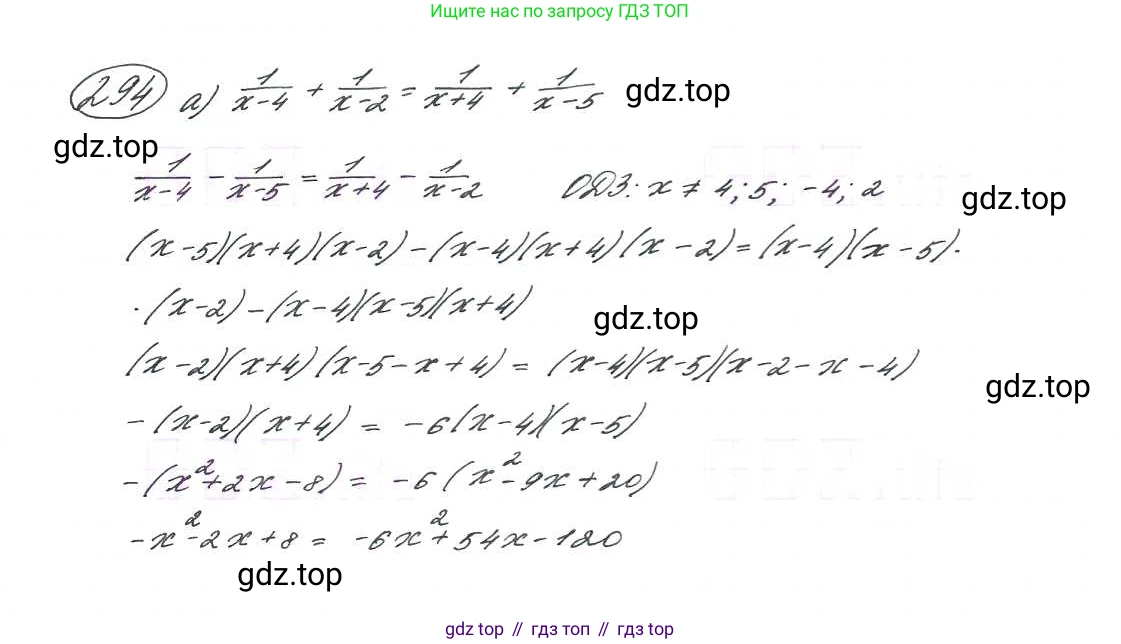 Ищите нас по запросу ГДЗ ТОП
294 а) 1/(x-4) + 1/(x-2) = 1/(x+4) + 1/(x-5) gdz.top
gdz.top
1/(x-4) - 1/(x-5) = 1/(x+4) - 1/(x-2) ОДЗ: x ≠ 4; 5; -4; 2 gdz.top
(x-5)(x+4)(x-2) - (x-4)(x+4)(x-2) = (x-4)(x-5)·
·(x-2) - (x-4)(x-5)(x+4) gdz.top
(x-2)(x+4)(x-5-x+4) = (x-4)(x-5)(x-2-x-4)
gdz.top
-(x-2)(x+4) = -6(x-4)(x-5)
-(x²+2x-8) = -6(x²-9x+20)
-x²-2x+8 = -6x²+54x-120
gdz.top
gdz top // гдз топ // gdz top